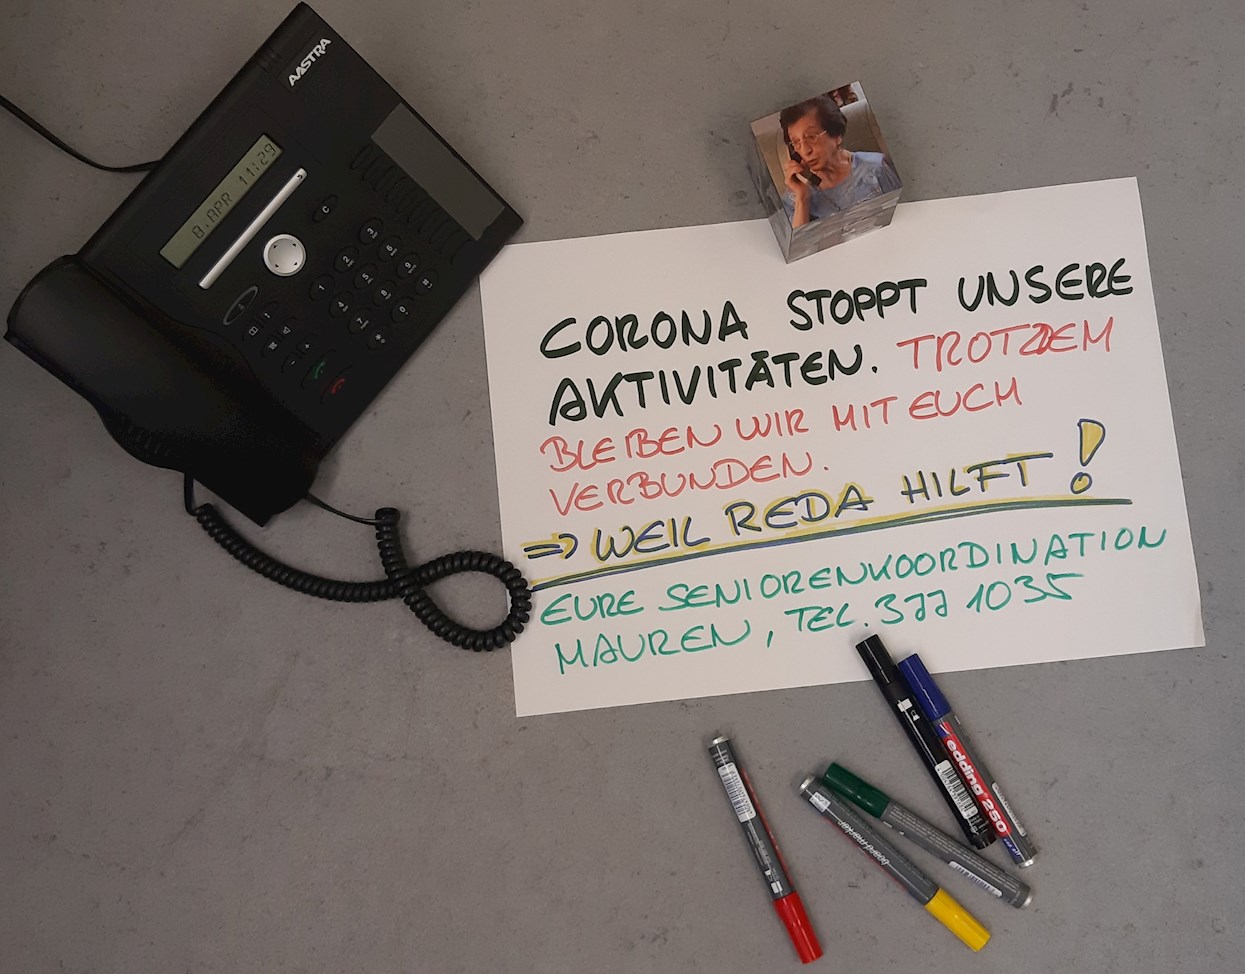 AASTRA
8.APR 11:29
CORONA STOPPT UNSERE
AKTIVITÄTEN. TROTZDEM
BLEIBEN WIR MIT EUCH
VERBUNDEN.
=> WEIL REDA HILFT!
EURE SENIORENKOORDINATION
MAUREN, TEL. 377 1035
edding 250
boardmarker